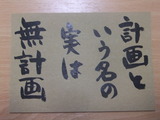 計画と
いう名の
実は
無計画